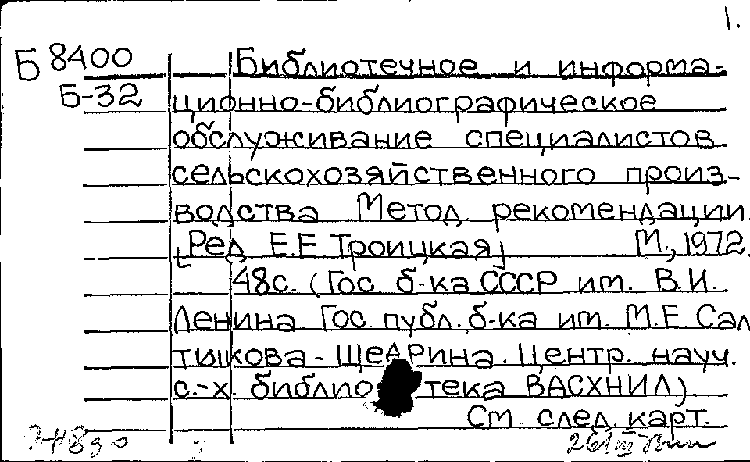 1.
Б 8400 Библиотечное и информа-
Б-32 ционно-библиографическое
обслуживание специалистов
сельскохозяйственного произ-
водства Метод. рекомендации.
[Ред Е.Е Троицкая] М., 1972.
48с. (Гос б-ка СССР им. В.И.
Ленина Гос публ. б-ка им. М.Е Сал
тыкова-Щедрина. Центр. науч.
с.-х. библиотека ВАСХНИЛ)
См след. карт.